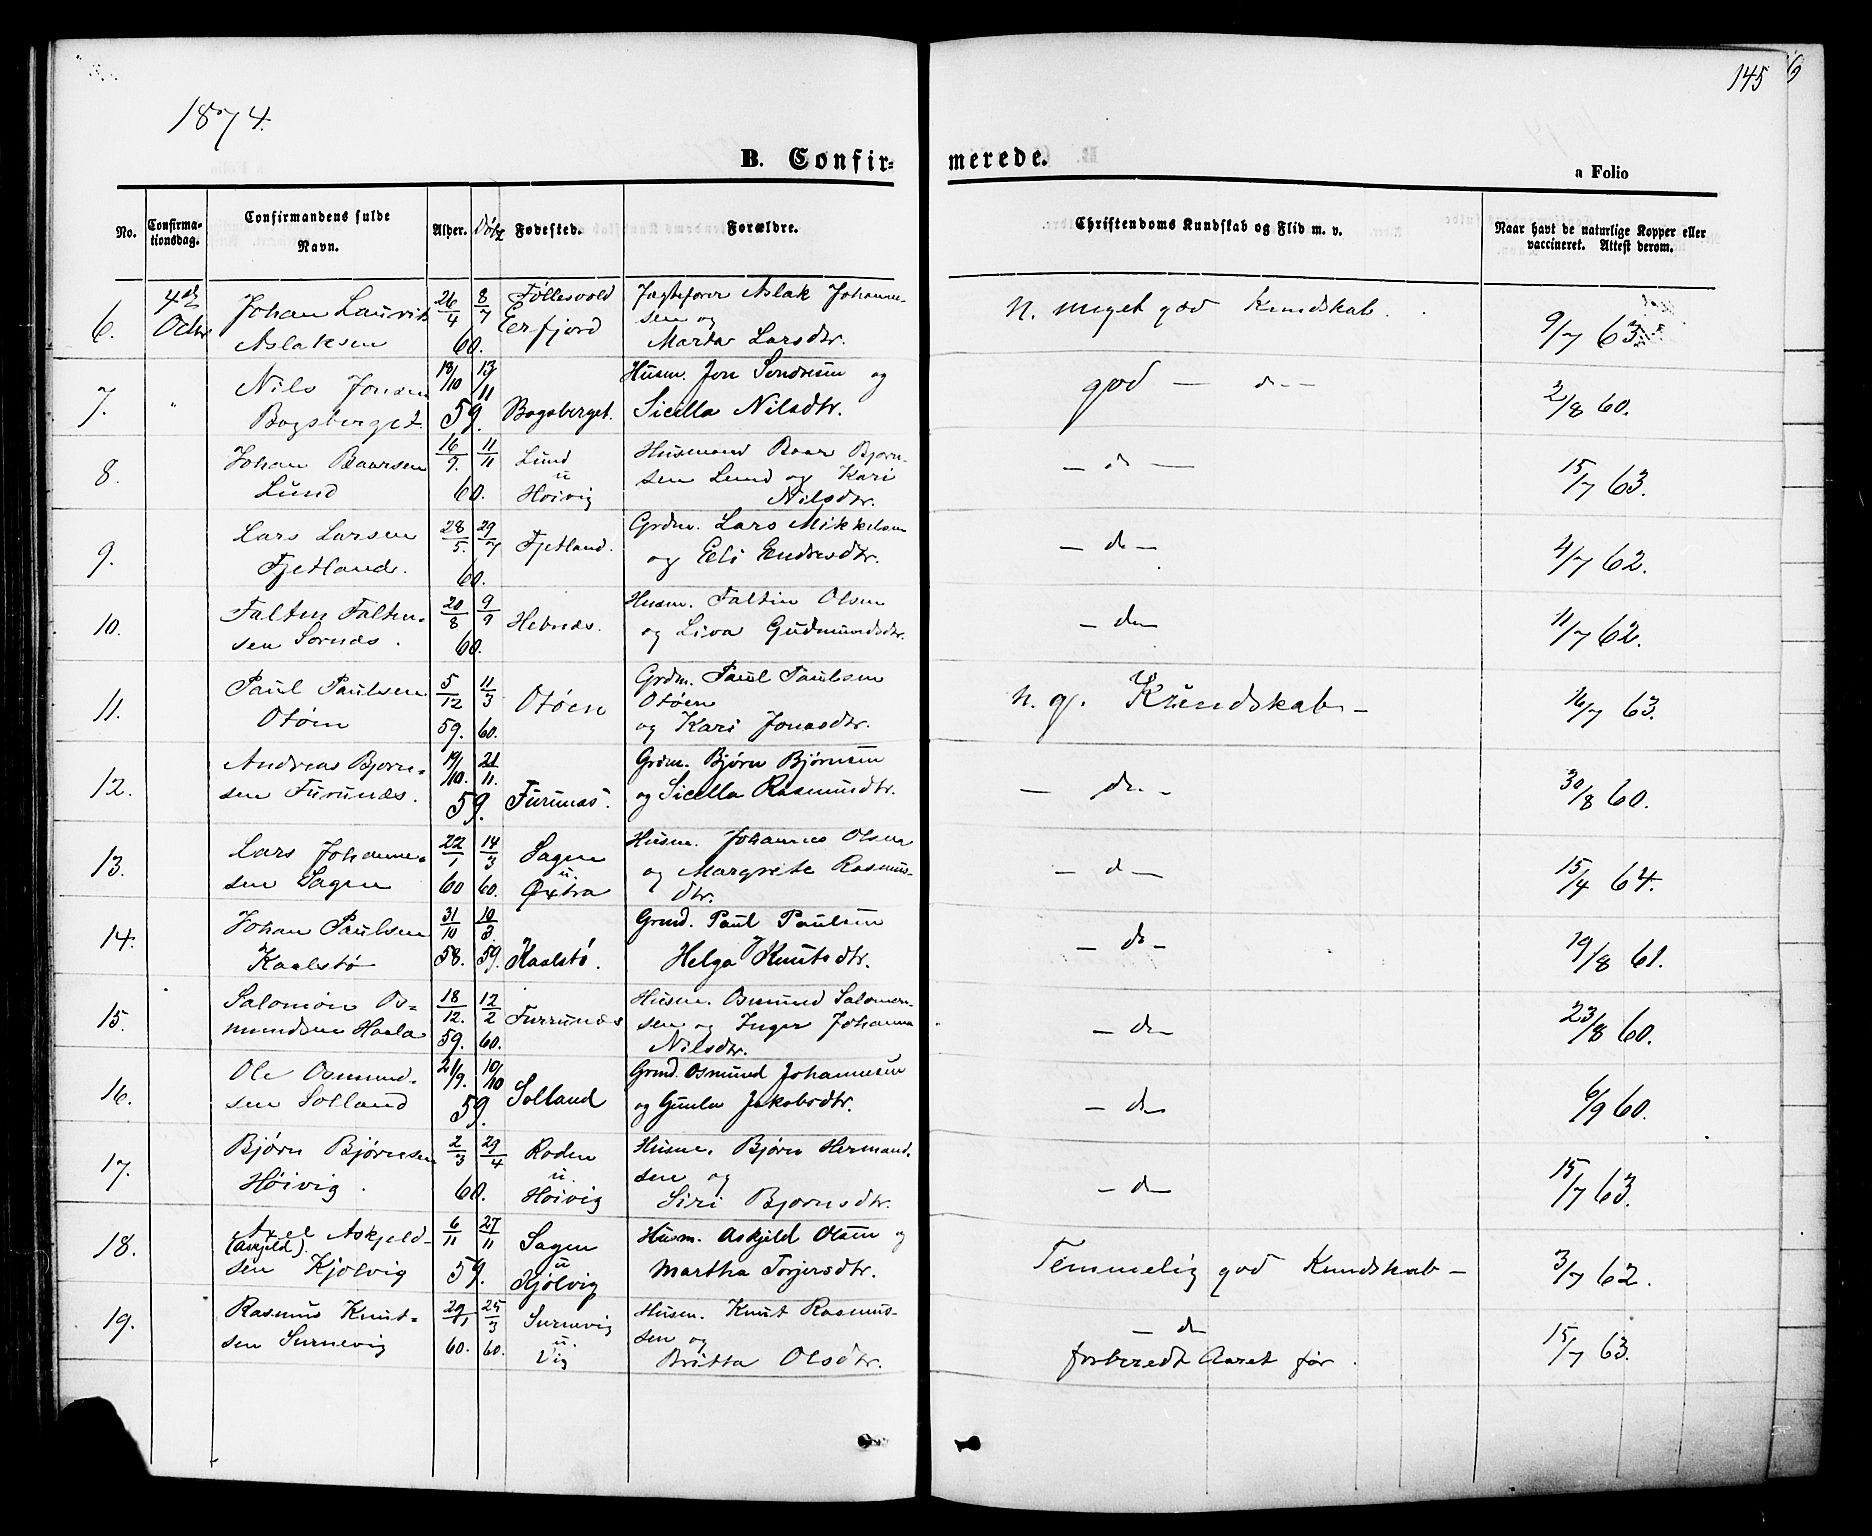 145
1874.
B. Confir-
merede.
a Folio
No.
Confirma-
tionsdag.
Confirmandens fulde
Navn.
Alder.
Døbt
Fødested.
Forældre.
Christendoms Kundskab og Flid m. v.
Naar havt de naturlige Kopper eller
vaccineret. Attest derom.
6. 4de Johan Laurits 26/4 8/7 Føllesvold Jagtefører Aslak Johanne-
Octbr Aslaksen 60. Erfjord sen og
Marta Larsdtr.
N. meget god Kundskab. 9/7 63.
7. " Nils Jonsen 18/10 13/11 Husm. Jon Sondresen og
Bogsberget 59. Bogsberget. Sicella Nilsdtr.
god — do — 2/8 60.
8. Johan Baarsen 16/9. 11/11 Lund Husmand Baar Bjørn-
Lund 60. u Høivig sen Lund og Kari
Nilsdtr.
— do — 15/7 63.
9. Lars Larsen 28/5. 29/7 Fjetland. Grdm. Lars Mikkelsen
Fjetland. 60. og Eli Endresdtr.
— do — 4/7 62.
10. Faltin Faltin- 20/8 9/9 Hebnæs. Husm. Faltin Olsen
sen Sornæs. 60. og Liva Gudmundsdtr.
— do — 11/7 62.
11. Paul Paulsen 5/12 11/3 Otøen Grdm. Paul Paulsen
Otøen 59. 60. Otøen
og Kari Jonasdtr.
N. g. Kundskab — 16/7 63.
12. Andreas Bjørn- 19/10. 21/11. Grdm. Bjørn Bjørnsen
sen Furunæs. 59. Furunæs. og Sicella Rasmusdtr.
— do — 30/8 60.
13. Lars Johanne- 22/1 14/3 Sagen Husm. Johannes Olsen
sen Sagen 60 60. u. Øxtra og Margrete Rasmus-
dtr.
— do — 15/4 64.
14. Johan Paulsen 31/10 Grmd. Paul Paulsen
Kaalstø 58. 59. Kaalstø. Helga Knutsdtr.
— do — 19/8 61.
15. Salomon Os- 18/12. 12/2 Furrunæs Husm. Osmund Salomon-
mundsen Haala 59. 60. sen og Inger Johanna
Nilsdtr.
— do — 23/8 60.
16. Ole Osmund- 21/9. 10/10 Solland Grmd. Osmund Johannesen
sen Solland 59. og Gunla Jakobsdtr.
— do 6/9 60.
17. Bjørn Bjørnsen 2/3 29/4 Roden Husm. Bjørn Hermand-
Høivig. 60. u. Høivig sen og
Siri Bjørnsdtr.
— do — 15/7 63.
18. Axel Askjeld- 6/11 27/11 Sagen Husm. Askjeld Olsen og
(Askjeld).
sen Kjølvig 59. u Kjølvig Martha Torjersdtr.
Temmelig god Kundskab — 3/7 62.
19. Rasmus Knut- 29/1 25/3 Surnevig Husm. Knut Rasmus-
sen Surnevig 60. 60. u. Vig sen og
Britta Olsdtr.
— do
forberedt Aaret før. 15/7 63.